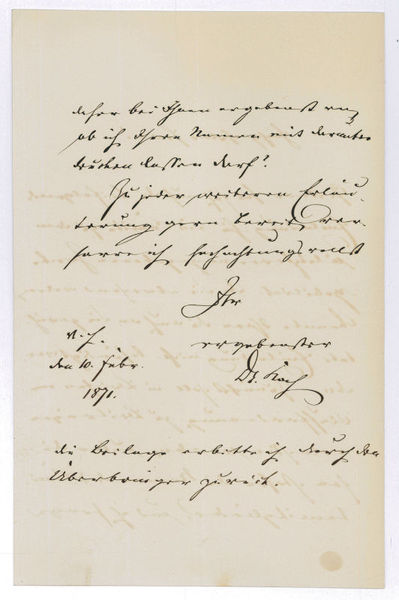 daher bei Ihnen ergebenst an,
ob ich Ihren Namen mit darunter
drucken lassen darf?
Zu jeder weiteren Erläu-
terung gern bereit, ver-
harre ich hochachtungsvollst
Ihr
ergebenster
Dr. Koch
v. H.
den 10. Febr.
1871.
die Beilage erbitte ich durch den
Überbringer zurück.